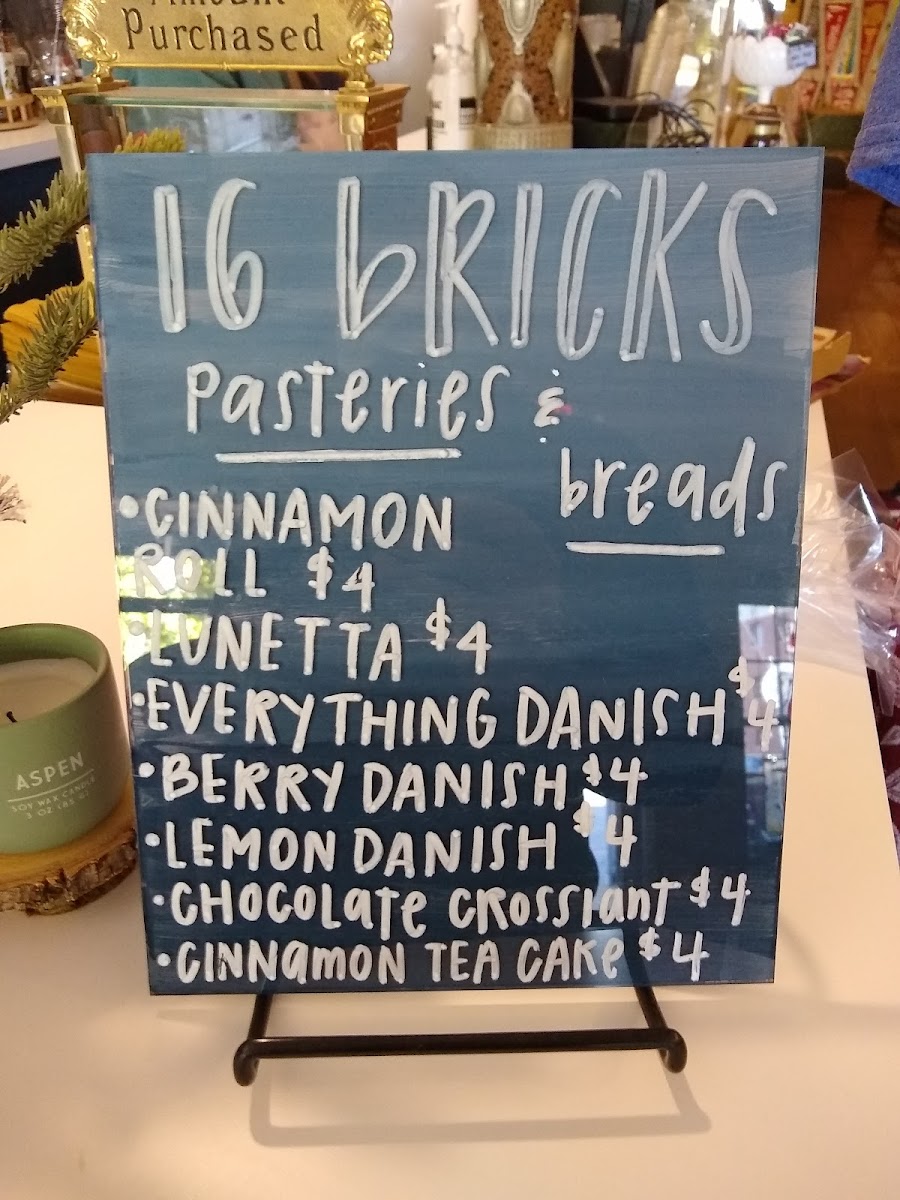 Amount
Purchased
16 bRICKS
Pasteries &
breads
•CINNAMON
ROLL $4
•LUNETTA $4
•EVERYTHING DANISH $4
•BERRY DANISH $4
•LEMON DANISH $4
•CHOCOLATE CROSSIANT $4
•CINNAMON TEA CAKE $4
ASPEN
SOY WAX CANDLE
3 OZ (85 G)